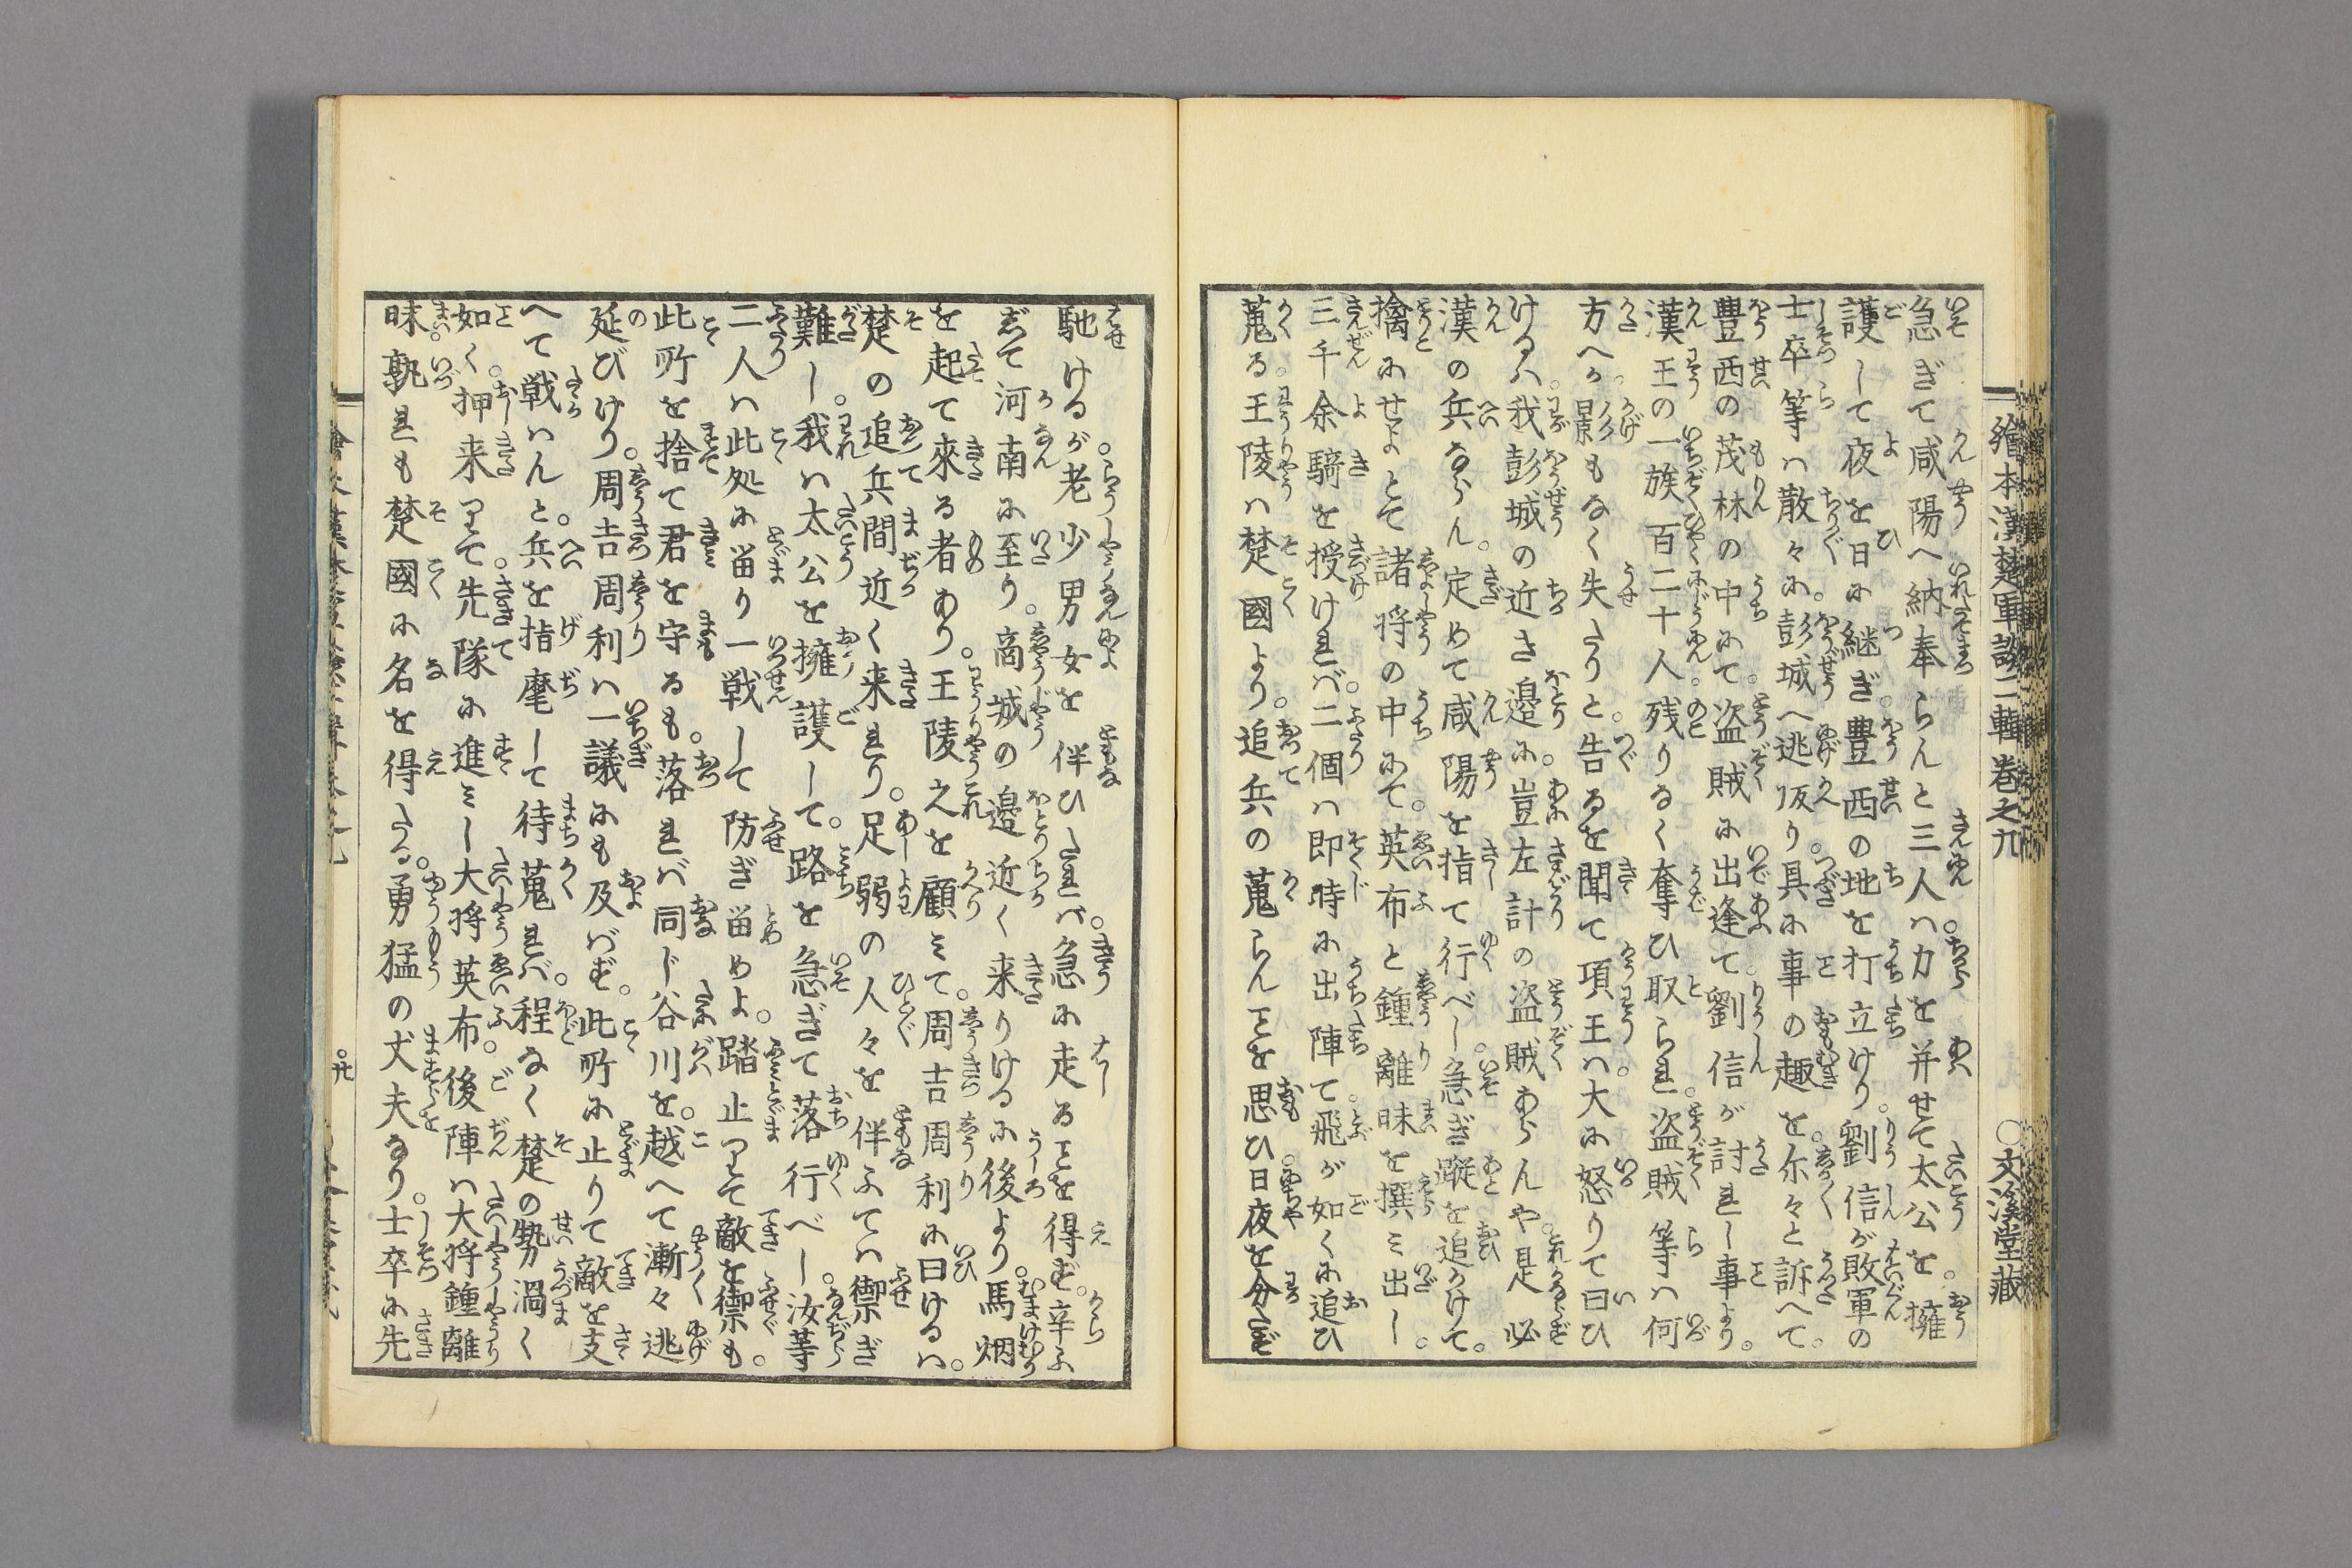 繪本漢楚軍談二輯巻之九　○文溪堂藏
急ぎて咸陽へ納奉らんと三人ハ力を并せて太公を。擁
護して夜を日に継ぎ。豊西の地を打立けり。劉信が敗軍の
士卒等ハ散々に。彭城へ逃皈り具に事の趣を。尓々と訴へて。
豊西の茂林の中にて。盗賊に出逢て。劉信が討れし事より。
漢王の一族百二十人。残りなく奪ひ取られ。盗賊等ハ何
方へか。影もなく失たりと。告るを聞て項王ハ。大に怒りて曰ひ
けるハ。我彭城の近き邉に。豈左計の盗賊あらんや。是必
漢の兵ならん。定めて咸陽を指て行べし。急ぎ蹤を追かけて。
擒にせよとて諸将の中にて。英布と鍾離昧を撰ミ出し。
三千余騎を授けれバ。二個ハ即時に出陣て。飛が如くに追ひ
蒐る。王陵ハ楚國より。追兵の蒐らんことを思ひ。日夜を分たず
馳けるが。老少男女を伴ひたれバ。急に走ることを得ず。辛ふ
じて河南に至り。商城の邉近く来りけるに後より。馬烟
を起て來る者あり。王陵之を顧ミて。周吉周利に曰けるハ。
楚の追兵間近く来れり。足弱の人々を伴ふてハ禦ぎ
難し。我ハ太公を擁護して。路を急ぎて落行べし。汝等
二人ハ此処に畄り一戦して防ぎ畄めよ。踏止りて敵を禦も。
此所を捨て君を守るも。落れバ同じ谷川を。越へて漸々逃
延びけり。周吉周利ハ一議にも及バず。此所に止りて敵を支
へて戦ハんと。兵を指麾して待蒐れバ。程なく楚の勢渦く
如く。押来りて。先隊に進ミし大将英布。後陣ハ大将鍾離
昧。孰れも楚國に名を得たる。勇猛の丈夫なり。士卒に先